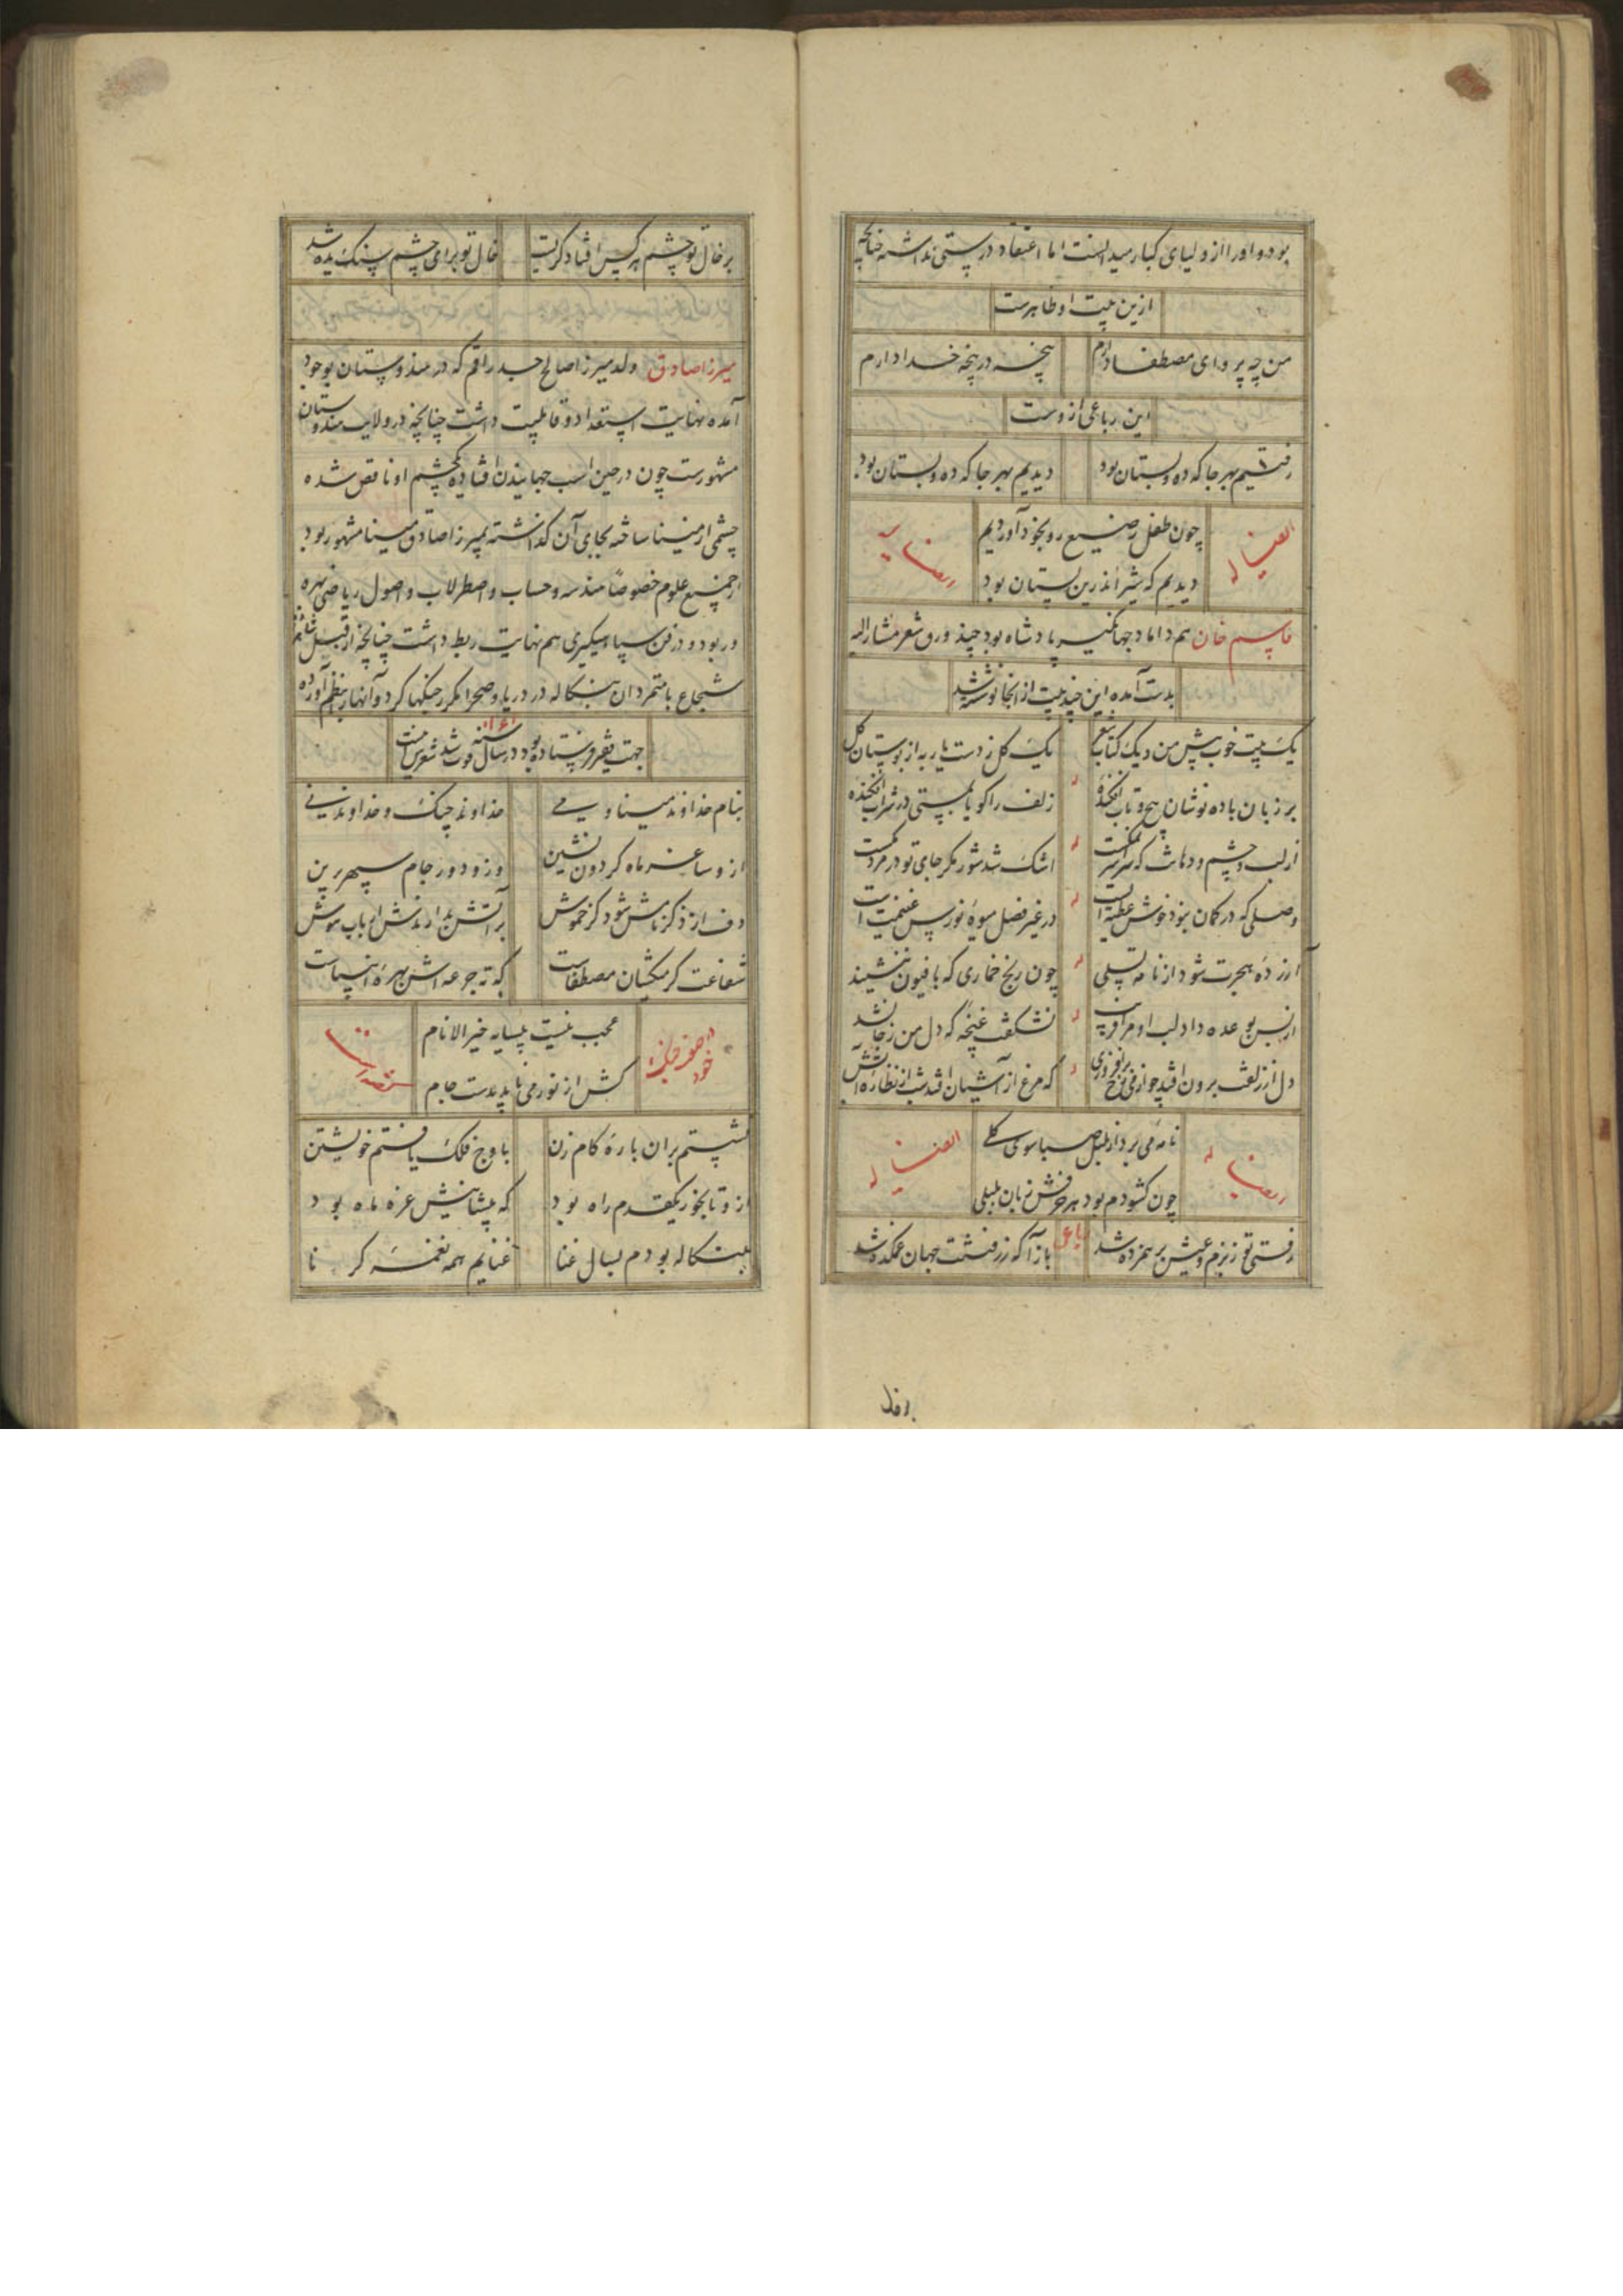 بوده و اورا از اولیای کبار میدانست اما اعتقاد درستی نداشته چنانچه
ازین بیت او ظاهرست
من چه پروای مصطفا دارم
پنجه در پنجه خدا دارم
این رباعی ازوست
رفتیم بهر جا که ده و بستان بود
دیدیم بهر جا که ده و بستان بود
ایضا له
چون طفل رضیع رو بخود آوردیم
ایضا له
دیدیم که شیر اندرین پستان بود
قاسم خان هم داماد جهانگیر پادشاه بود چند ورق شعر مشارالیه
بدست آمده این چند بیت از انجا نوشته شد
یک بیت خوب پیش من و یک کتاب شعر
یک گل ز دست یار به از بوستان گل
بر زبان باده نوشان پیچ و تاب افکنده
زلف را گویا بمستی در شراب افکنده
از لب و چشم و دهانت که سراسر نمکست
اشک شد شور مگر جای تو در مردمکست
وصلی که در گمان نبود خوش عطیه است
در غیر فصل میوه نورس غنیمت است
آزرده هجرت شود از نامه تسلی
چون رنج خماری که بافیون ننشیند
از بس بوعده داد لب او مرا فریب
نشکفت غنچه که دل من ز جا نشد
دل از زلفت برون افتد چو از می رخ برافروزی
که مرغ از آشیان افتد شب از نظاره آتش
ایضا له
نامه می برد از بلبل صبا سوی گلی
ایضا له
چون گشودم بود هر حرفش زبان بلبلی
رفتی تو ز بزم و عیش برهمزده شد
رباعی
باز آ که ز رفتنت جهان غمکده شد
بر خال
بر خال تو چشم هر کس افتاد گریست
خال تو برای چشم سنگ یده شد
میرزا صادق ولد میرزا صالح جد راقم که در هندوستان بوجود
آمده نهایت استعداد و قابلیت داشت چنانچه در ولایت هندوستان
مشهورست چون در حین اسب جهانیدن افتاده یکچشم او ناقص شده
چشمی از مینا ساخته بجای آن گذاشته بمیرزا صادق مینا مشهور بود
از جمیع علوم خصوصاً هندسه و حساب و اصطرلاب و اصول ریاضی بهره
ور بود و در فن سپاهیگیری هم نهایت ربط داشت چنانچه از قبل شاه
شجاع با متمردان بنگاله در دریا و صحرا مکرر جنگها کرد و آنها را بنظم آورده
جهت فقیر فرستاده بود در سال سنه ۱۰۶۱ فوت شد شعرش اینست
بنام خداوند مینا و می
خداوند چنگ و خداوند نی
ازو ساغر ماه گردون نشین
وزو دور جام سپهر برین
دف از ذکر نامش شود گر خموش
بر آتش بدارندش ارباب هوش
شفاعت گر میکشان مصطفاست
که ته جرعه اش بهره انبیاست
عجب نیست بیسایه خیر الانام
کش از نور می باید بدست جام
نشستم بران باره گام زن
باوج فلک یافتم خویشتن
ازو تا بخور یکقدم راه بود
که پیشانیش غره ماه بود
ببنگاله بودم بسال غنا
غنایم همه نغمه کرنا